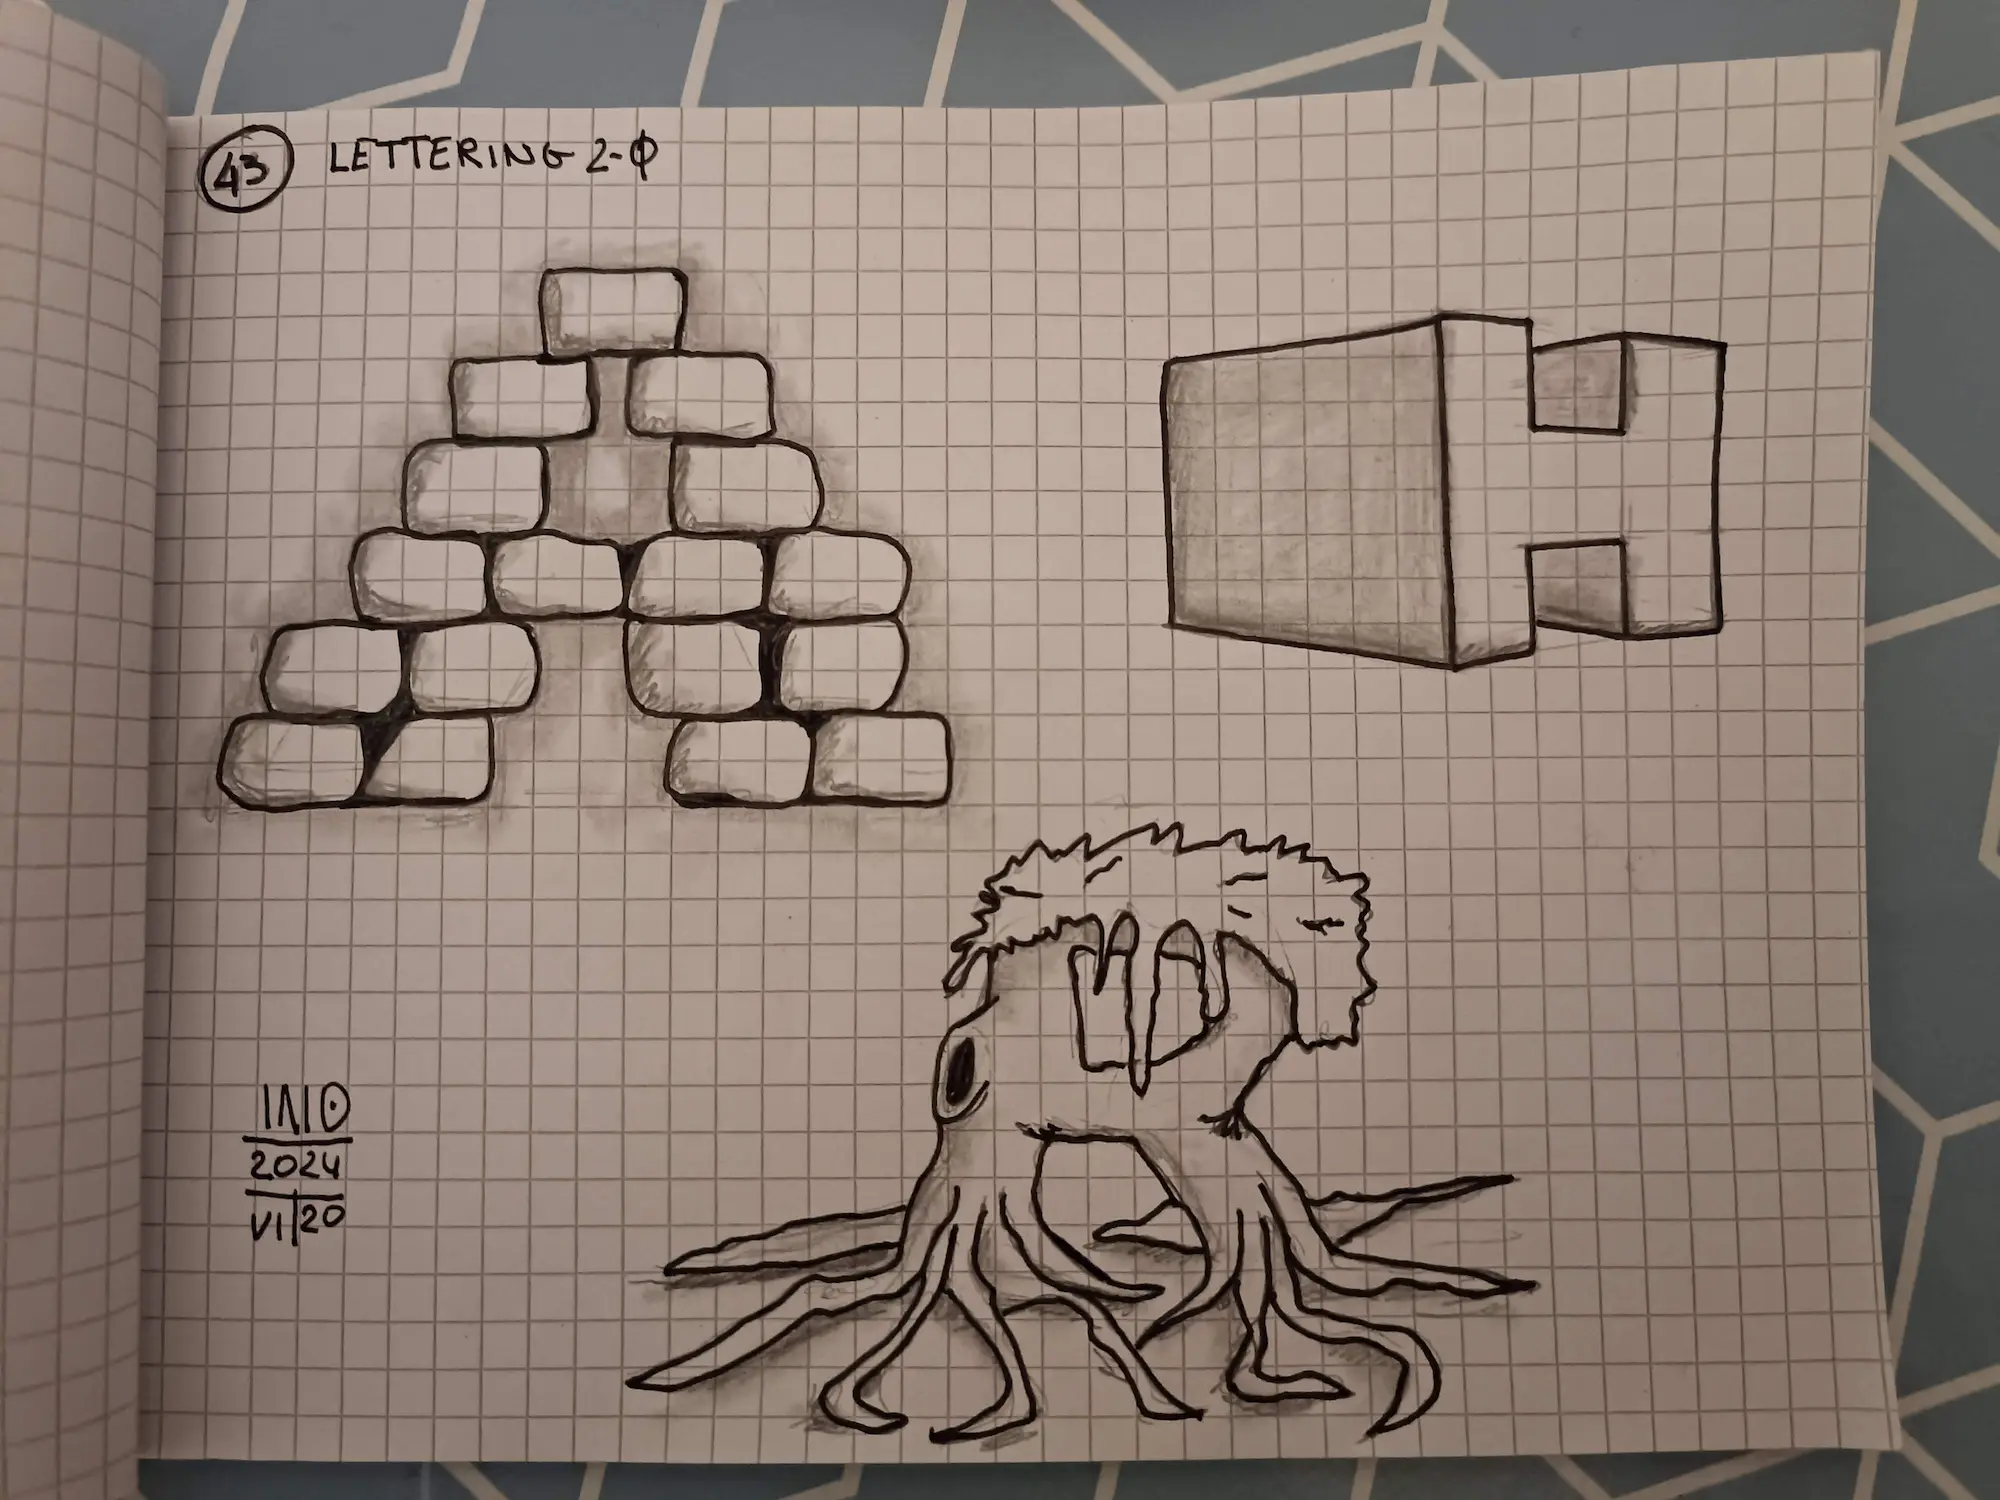 43 LETTERING 2-0
A
H
A
2024
VI 20